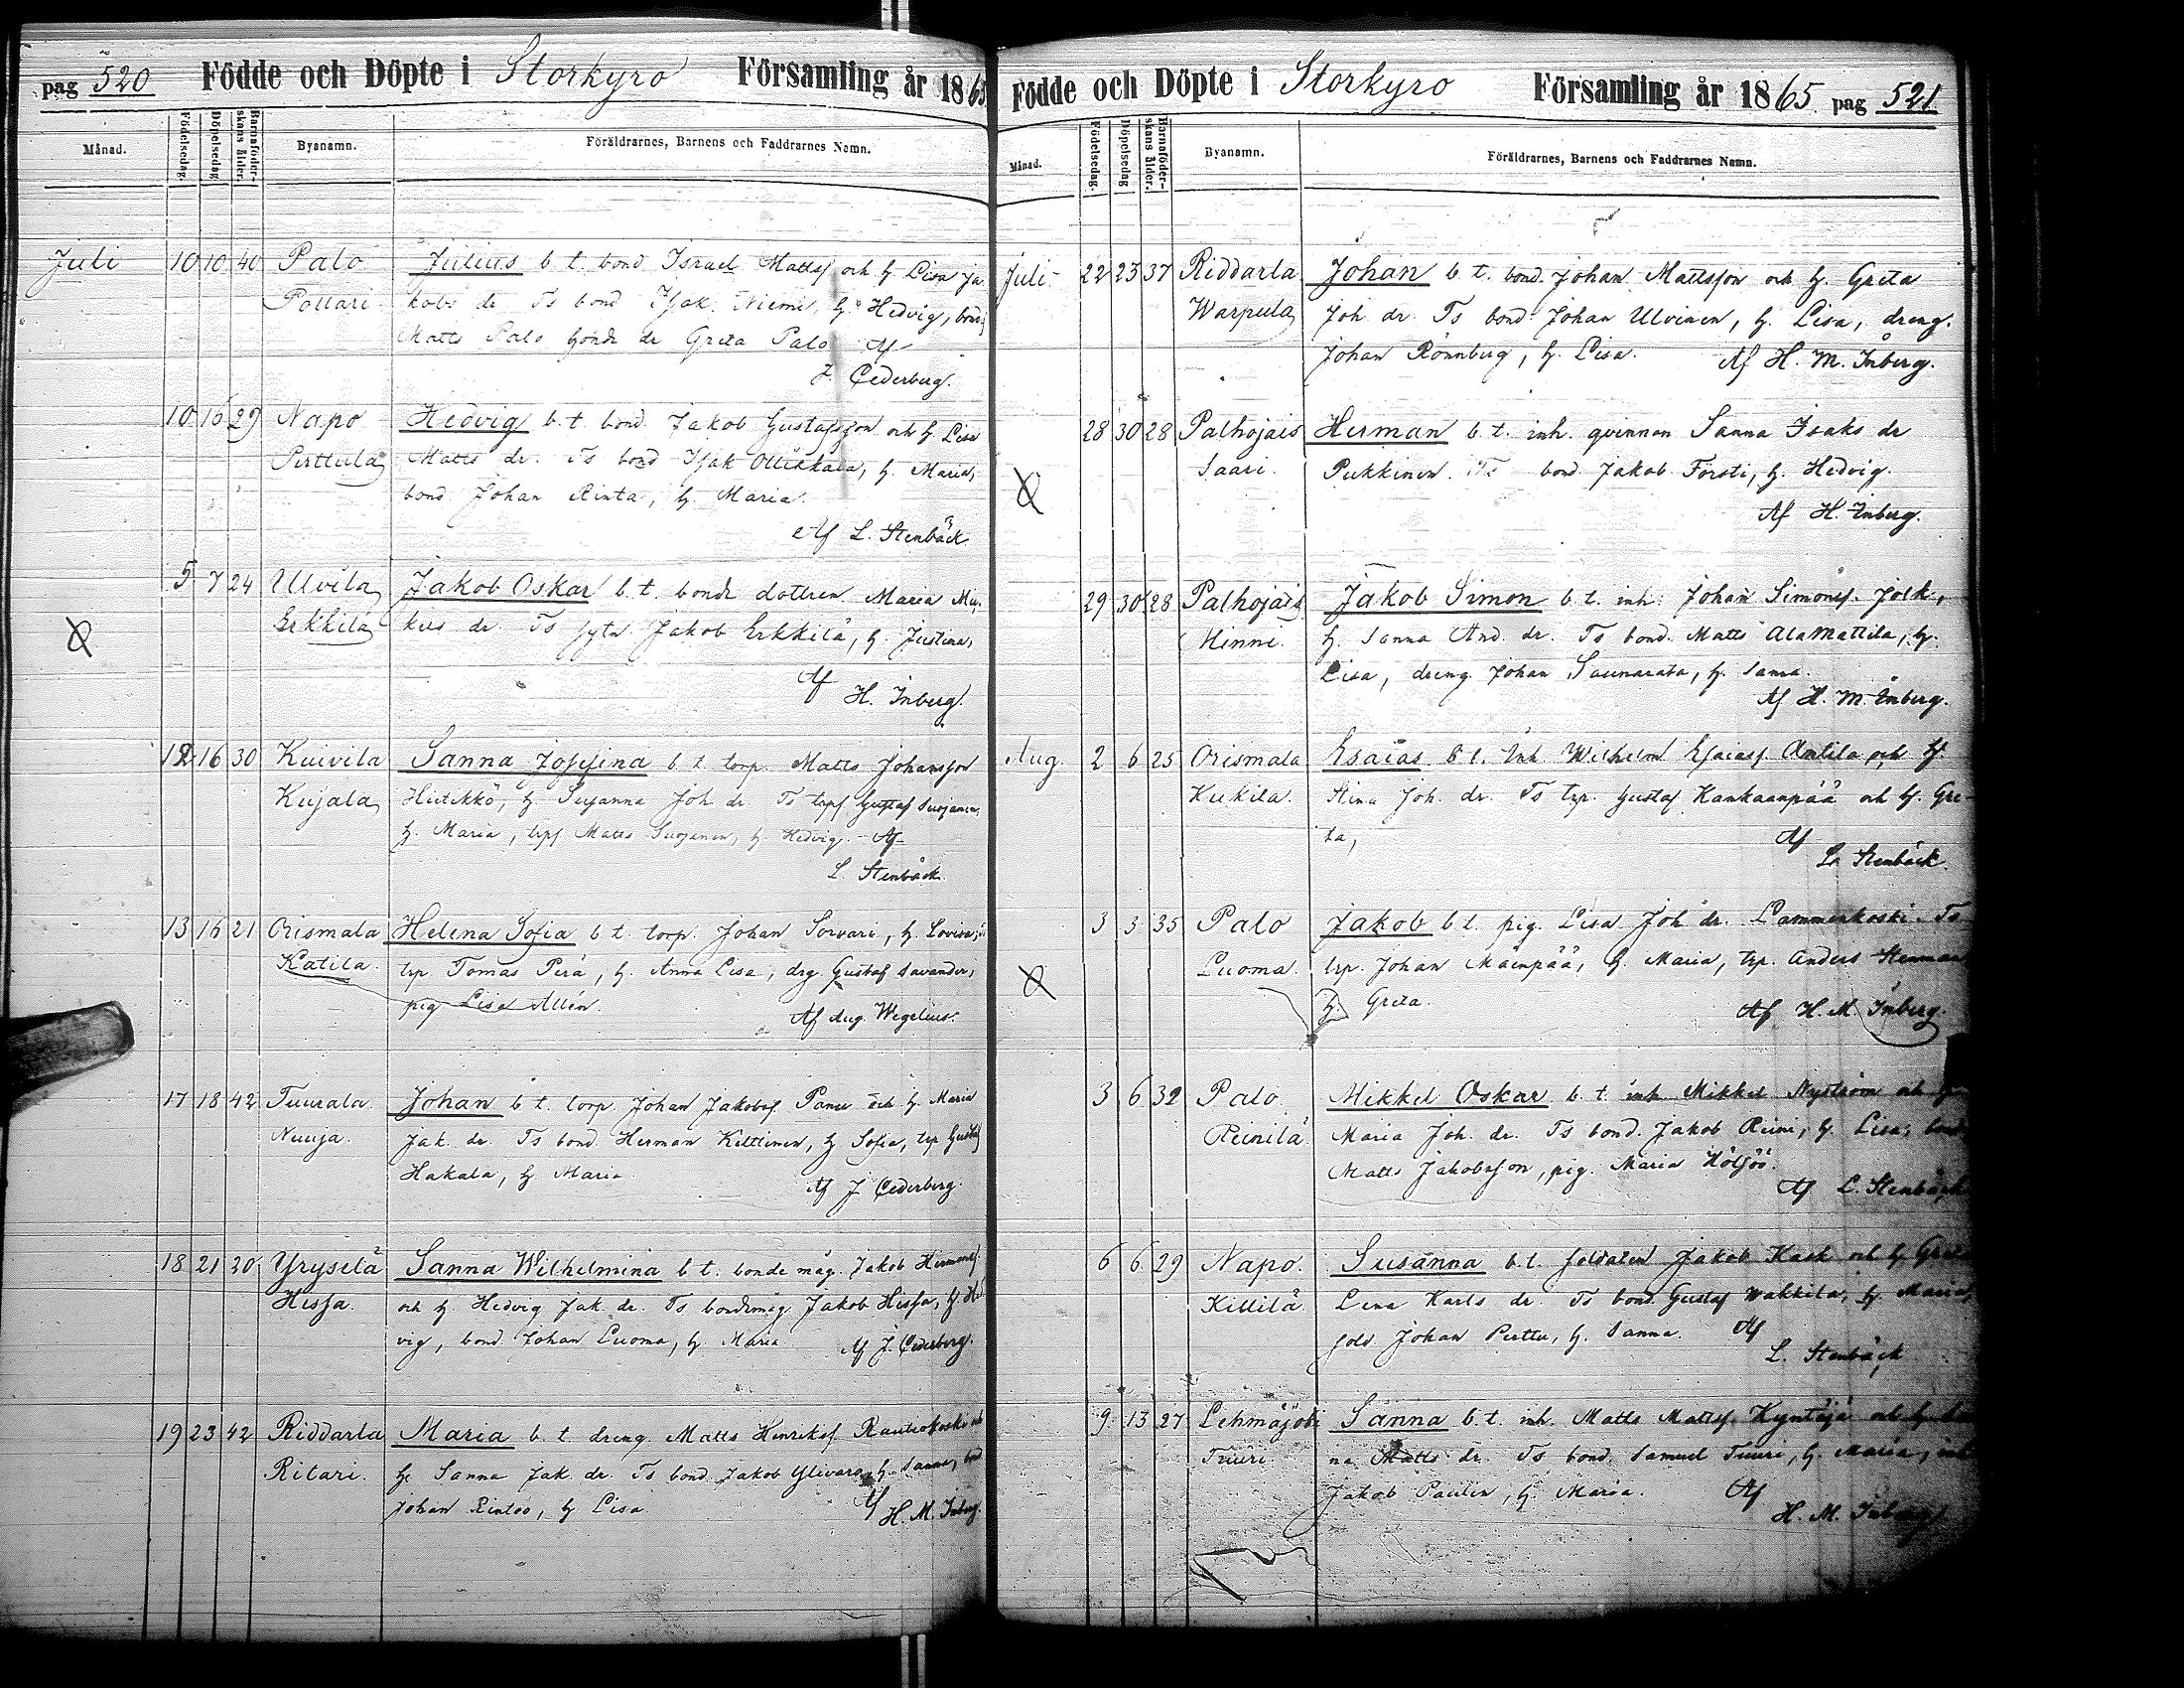 pag 520 Födde och Döpte i Storkyro Församling år 1865
Månad. Födelsedag. Döpelsedag. Barnaföder-skans ålder. Byanamn. Föräldrarnes, Barnens och Faddrarnes Namn.
Juli 10 10 40 Palo Julius b. t. bond Israel Mattsf och h. Lisa Ja-
Pollari kobs dr Ts bond Isak Niemi, h. Hedvig, bond
Matts Palo bonde dr Greta Palo Af
J. Cederberg.
10 16 29 Napo Hedvig b. t. bond Jakob Gustafsson och h. Lisa
Pirttula Matts dr. Ts bond Isak Ollikkala, h. Maria,
bond. Johan Rinta, h. Maria.
Af L. Stenbäck
5 7 24 Ulvila Jakob Oskar b. t. bonde dottren Maria
Erkkila dr. Ts Jakob Erkkilä, h. Justina,
Af
H. Inberg.
12 16 30 Kuivila Sanna Josefina b. t. torp. Matts Johansson
Kujala h. Susanna Joh. dr Ts trpf Gustaf Suojanen,
h. Maria, trpf Matts Suojanen, h. Hedvig. Af
L. Stenbäck.
13 16 21 Orismala Helena Sofia b. t. torp. Johan Sorvari, h. Lovisa,
Katila. trp. Tomas Perä, h. Anna Lisa, drg. Gustaf Savander,
pig Lisa Allén.
Af Aug. Wegelius.
17 18 42 Tuurala. Johan b. t. torp. Johan Jakobsf. Panu och h. Maria
Nuuja. Jak. dr. Ts bond. Herman Kilttinen, h. Sofia, trp Gustaf
Hakala, h Maria
Af J Cederberg.
18 21 30 Yryselä Sanna Wilhelmina b. t. bonde måg. Jakob
Hissa. och h. Hedvig Jak. dr. Ts bondemåg Jakob Hissa, h. Hed-
vig, bond. Johan Luoma, h. Maria Af J. Cederberg.
19 23 42 Riddarla Maria b. t. dreng. Matts Henriksf. Rautiokoski och
Ritari. h. Sanna Jak. dr. Ts bond. Jakob Ylivaro, h. Sanna, bond
Johan Rintoo, h. Lisa Af
H. M. Inberg.
Födde och Döpte i Storkyro Församling år 1865 pag 521
Månad. Födelsedag. Döpelsedag Barnaföder-skans ålder. Byanamn. Föräldrarnes, Barnens och Faddrarnes Namn.
Juli 22 23 37 Riddarla Johan b. t. bond. Johan Mattsson och h. Greta
Warpula Joh. dr. Ts bond Johan Ulvinen, h. Lisa, dreng.
Johan Rönnberg, h. Lisa. Af H. M. Inberg.
28 30 28 Palhojais Herman b. t. inh. qvinnan Sanna Isaks dr
Saari. Pukkinen. Ts bond. Jakob Försti, h. Hedvig.
Af H. Inberg.
29 30 28 Palhojais Jakob Simon b. t. inh. Johan Simonsf.
Hinni. h. Sanna And. dr. Ts bond. Matts Alamattila, h.
Lisa, dreng Johan Saunarata, h. Sanna.
Af H. M. Inberg.
Aug. 2 6 25 Orismala Esaias b. t. Inh. Wilhelm Esaiasf. Anttila och h.
Kukila. Stina Joh. dr. Ts trp. Gustaf Kankaanpää och h. Gre-
ta, Af
L. Stenbäck.
3 3 35 Palo Jakob b. t. pig. Lisa Joh dr. Lammenkoski. Ts
Luoma. trp. Johan Mäenpää, h. Maria, trp. Anders Stenman
h. Greta.
Af H. M. Inberg.
3 6 32 Palo Mikkel Oskar b. t. inh Mikkel Nyström och h.
Reinilä Maria Joh. dr. Ts bond. Jakob Reini, h. Lisa, bond
Matts Jakobsson, pig. Maria Höljöö.
Af L. Stenbäck
6 6 29 Napo. Susanna b. t. soldaten Jakob Kask och h. Greta
Killilä Lena Karls dr. Ts bond. Gustaf Wakkila, h. Maria,
sold Johan Perttu, h. Sanna. Af
L. Stenbäck
9 13 27 Lehmäjoki Sanna b. t. inh. Matts Mattsf. Kyntäjä och h.
Tuuri na Matts dr. Ts bond. Samuel Tuuri, h. Maria, inh
Jakob Paulin, h. Maria. Af
H. M. Inberg